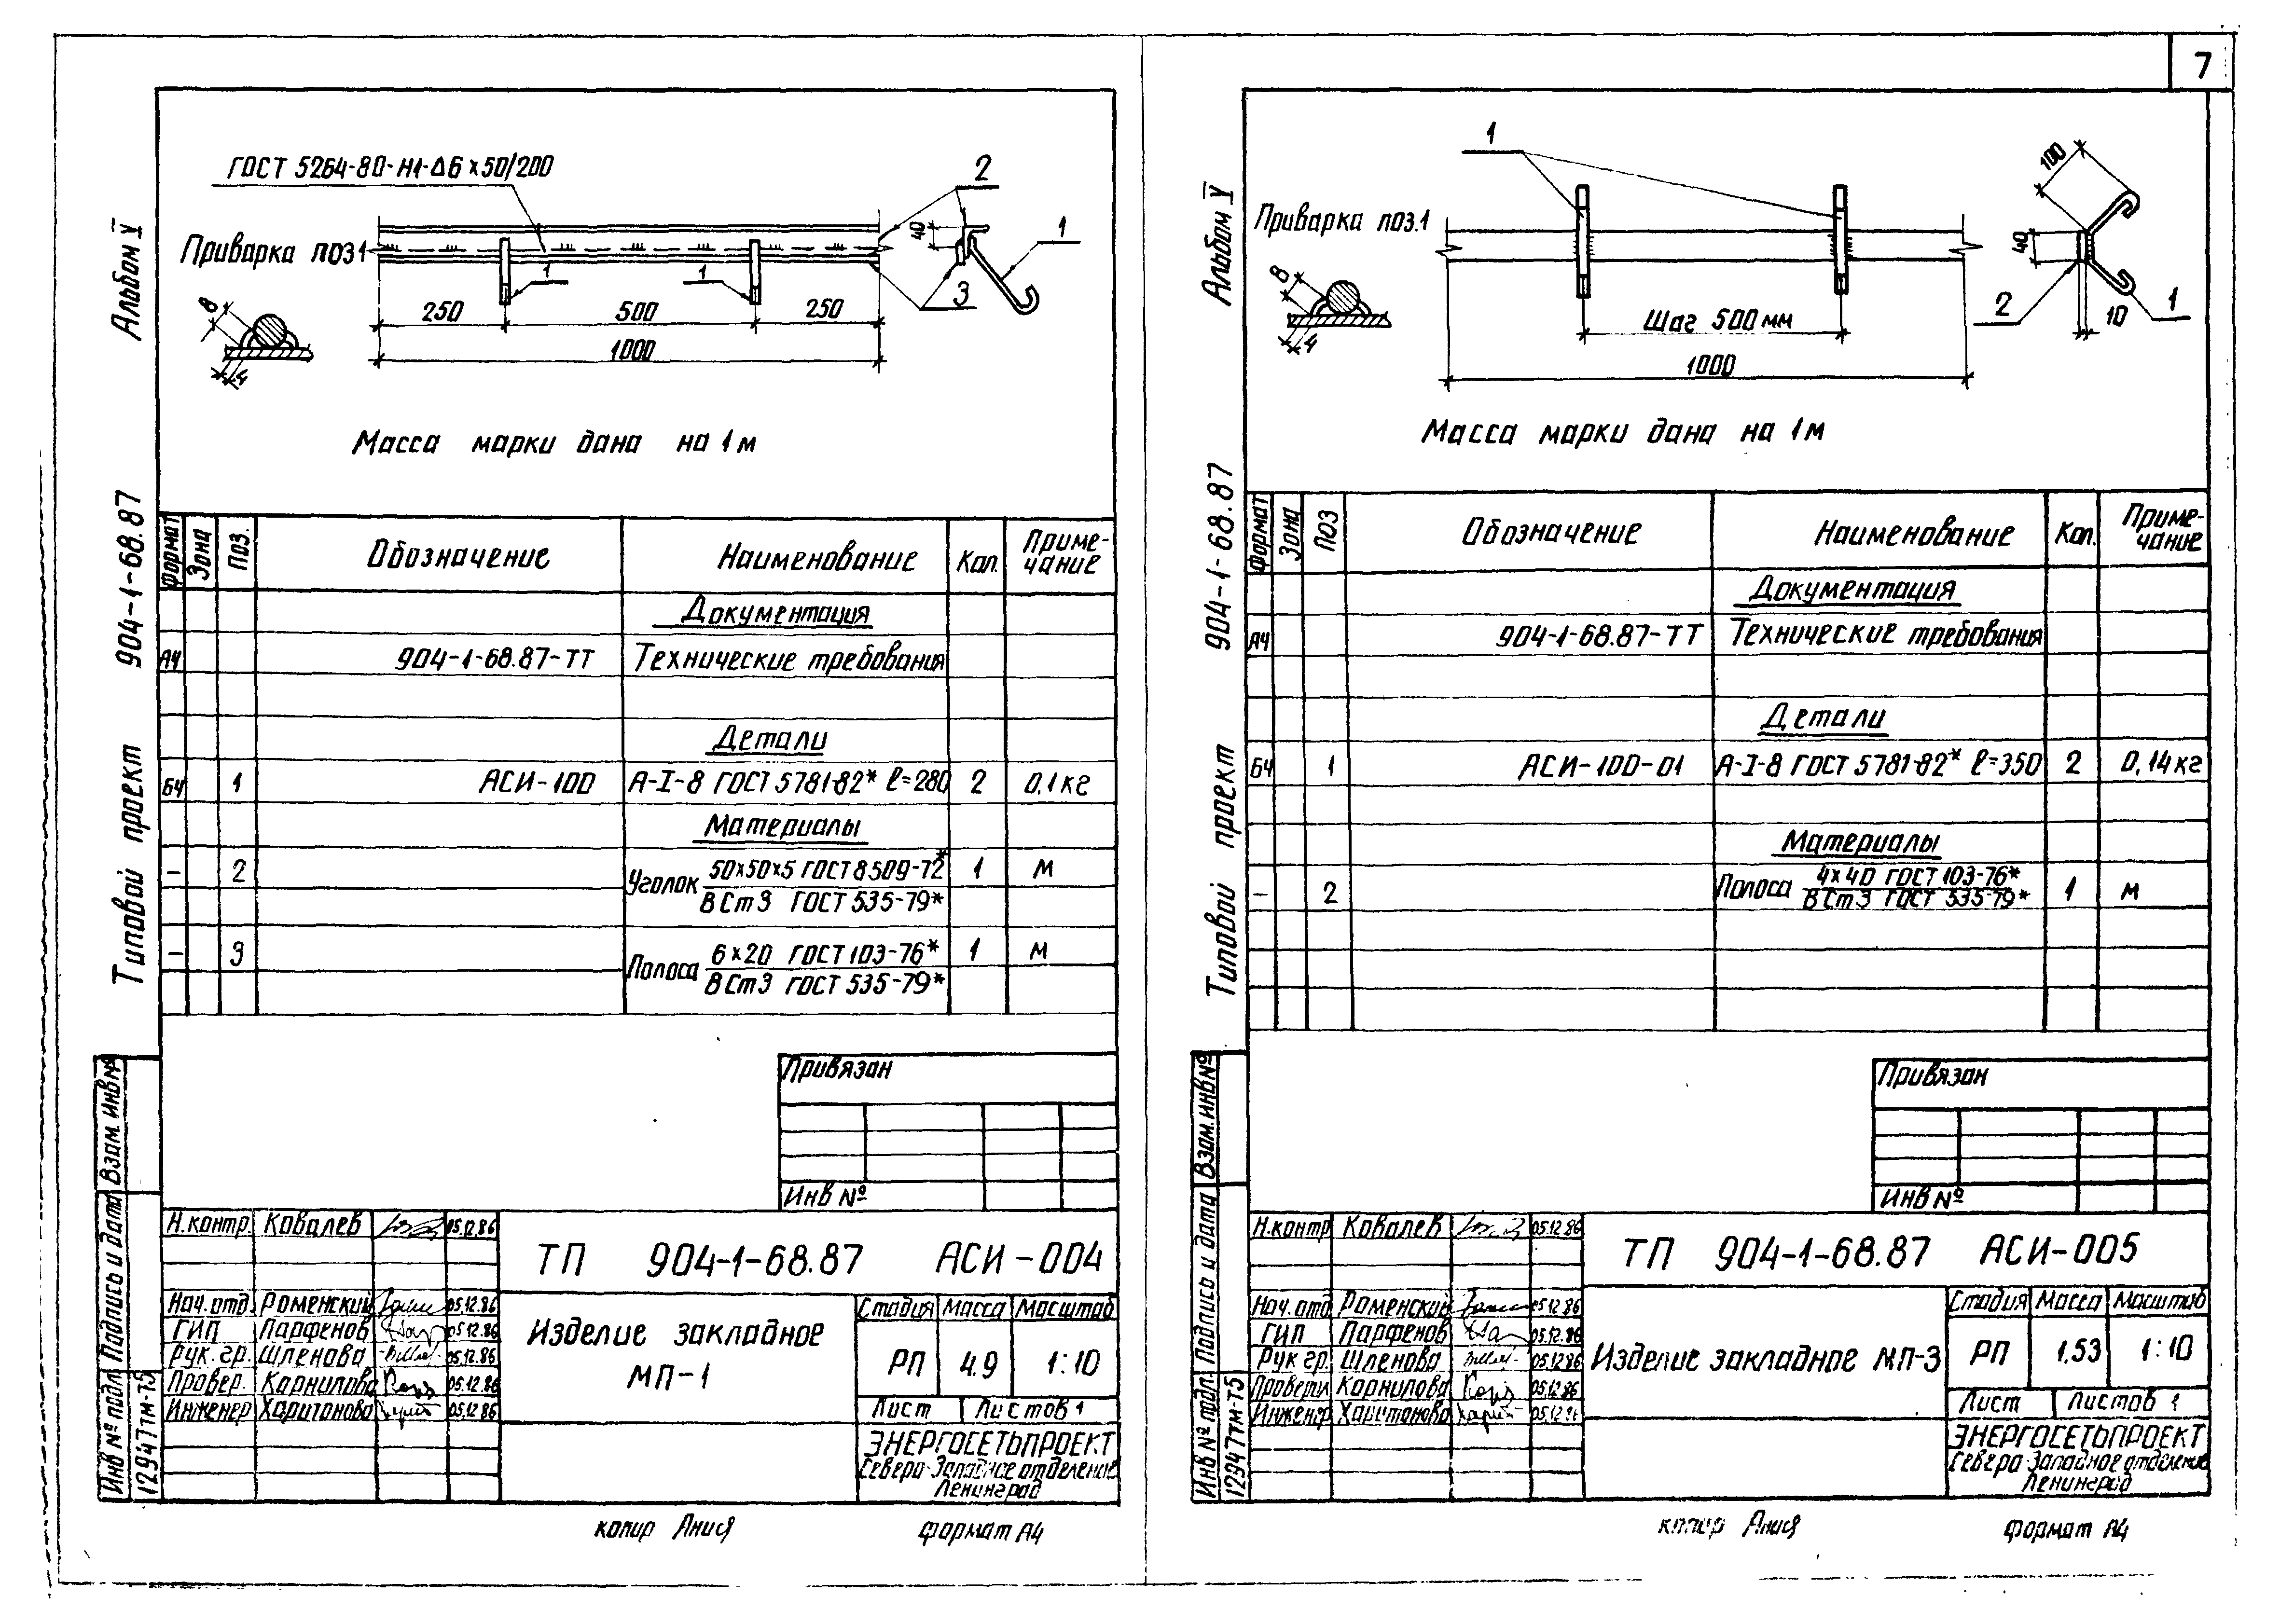 7
ГОСТ 5264-80-Н1-Δ6×50/200
Приварка поз1
8
4
1
1
2
1
3
40
250
500
250
1000
Масса марки дана на 1м
Альбом V
904-1-68.87
Типовой проект
Формат Зона Поз. Обозначение Наименование Кол. Приме-
чание
Документация
А4 904-1-68.87-ТТ Технические требования
Детали
БЧ 1 АСИ-100 А-I-8 ГОСТ 5781-82* l=280 2 0,1кг
Материалы
- 2 Уголок 50×50×5 ГОСТ 8509-72* 1 м
ВСт3 ГОСТ 535-79*
- 3 Полоса 6×20 ГОСТ 103-76* 1 м
ВСт3 ГОСТ 535-79*
Привязан
Инв №
Взам. инв №
Подпись и дата
Инв № подл.
12947тм-т5
Н.контр. Ковалев 05.12.86
ТП 904-1-68.87 АСИ-004
Нач.отд. Роменский 05.12.86
ГИП Парфенов 05.12.86
Рук.гр. Шленова 05.12.86
Провер. Корнилова 05.12.86
Инженер Харитонова 05.12.86
Изделие закладное
МП-1
Стадия Масса Масштаб
РП 4.9 1:10
Лист Листов 1
ЭНЕРГОСЕТЬПРОЕКТ
Северо-Западное отделение
Ленинград
копир Анися
формат А4
1
Приварка поз.1
8
4
Шаг 500мм
1000
100
40
2
10
1
Масса марки дана на 1м
Альбом V
904-1-68.87
Типовой проект
Формат Зона Поз Обозначение Наименование Кол. Приме-
чание
Документация
А4 904-1-68.87-ТТ Технические требования
Детали
БЧ 1 АСИ-100-01 А-I-8 ГОСТ 5781-82* l=350 2 0,14кг
Материалы
- 2 Полоса 4×40 ГОСТ 103-76* 1 м
ВСт3 ГОСТ 535-79*
Привязан
Инв №
Взам. инв №
Подпись и дата
Инв № подл.
12947тм-т5
Н.контр Ковалев 05.12.86
ТП 904-1-68.87 АСИ-005
Нач.отд Роменский 05.12.86
ГИП Парфенов 05.12.86
Рук гр. Шленова 05.12.86
Проверил Корнилова 05.12.86
Инженер Харитонова 05.12.86
Изделие закладное МП-3
Стадия Масса Масштаб
РП 1.53 1:10
Лист Листов 1
ЭНЕРГОСЕТЬПРОЕКТ
Северо-Западное отделение
Ленинград
копир Анися
формат А4